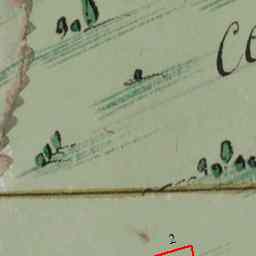 Ce
2